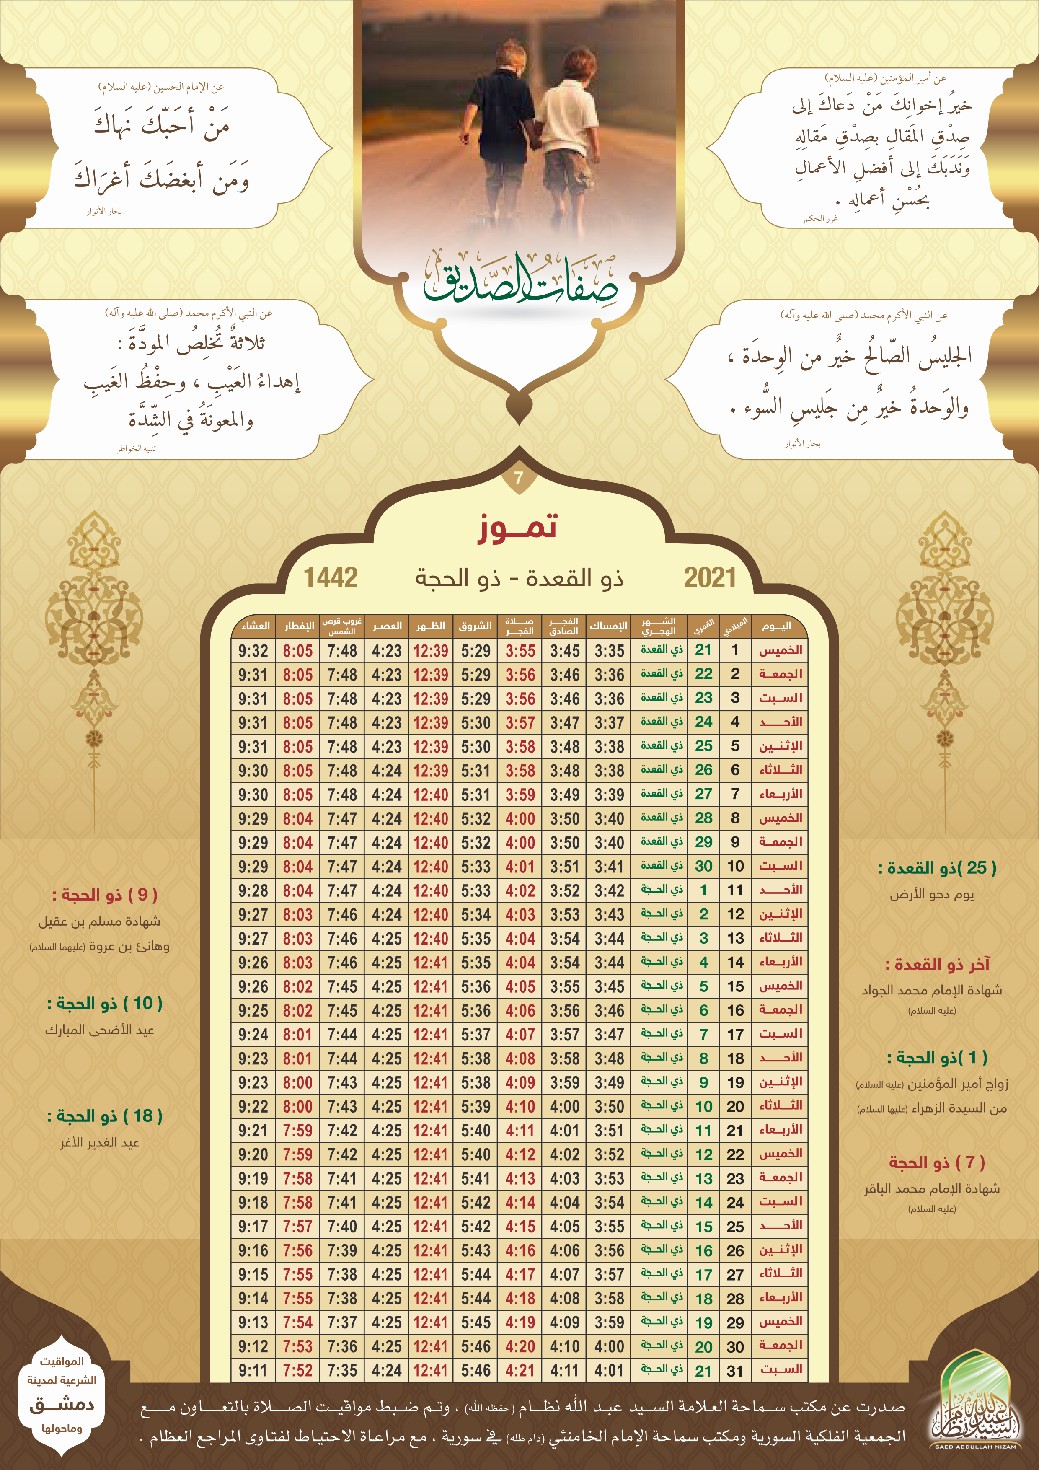 عن أمير المؤمنين (عليه السلام)
خيرُ إخوانِكَ مَنْ دَعاكَ إلى
صِدْقِ المَقالِ بصِدْقِ مَقالِهِ
وَنَدَبَكَ إلى أفضلِ الأعمالِ
بحُسْنِ أعمالِه .
غرر الحكم
عن الإمام الحسين (عليه السلام)
مَنْ أحَبّكَ نَهاكَ
وَمَن أبغضَكَ أغرَاكَ
بحار الأنوار
صِفَاتُ الصَّدِيق
عن النبي الأكرم محمد (صلى الله عليه وآله)
الجليسُ الصّالحُ خيرٌ من الوِحدَة ،
والوَحدةُ خيرٌ مِن جَليسِ السُّوء .
بحار الأنوار
عن النبي الأكرم محمد (صلى الله عليه وآله)
ثلاثةٌ تُخلِصُ المودَّةَ :
إهداءُ العَيْبِ ، وحِفْظُ الغَيبِ
والمعونَةُ في الشِّدَّة
تنبيه الخواطر
7
تمـــوز
2021 ذو القعدة - ذو الحجة 1442
اليـوم الميلادي القمري الشـــهر الهجري الإمساك الفجـر الصادق صـلاة الفجـر الشروق الظـهـر العصـر غروب قرص الشمس الإفطار العشاء
الخميس 1 21 ذي القعدة 3:35 3:45 3:55 5:29 12:39 4:23 7:48 8:05 9:32
الجمعـة 2 22 ذي القعدة 3:36 3:46 3:56 5:29 12:39 4:23 7:48 8:05 9:31
السـبت 3 23 ذي القعدة 3:36 3:46 3:56 5:29 12:39 4:23 7:48 8:05 9:31
الأحـــد 4 24 ذي القعدة 3:37 3:47 3:57 5:30 12:39 4:23 7:48 8:05 9:31
الإثنـين 5 25 ذي القعدة 3:38 3:48 3:58 5:30 12:39 4:23 7:48 8:05 9:31
الثـلاثاء 6 26 ذي القعدة 3:38 3:48 3:58 5:31 12:39 4:24 7:48 8:05 9:30
الأربعـاء 7 27 ذي القعدة 3:39 3:49 3:59 5:31 12:40 4:24 7:48 8:05 9:30
الخميس 8 28 ذي القعدة 3:40 3:50 4:00 5:32 12:40 4:24 7:47 8:04 9:29
الجمعـة 9 29 ذي القعدة 3:40 3:50 4:00 5:32 12:40 4:24 7:47 8:04 9:29
السـبت 10 30 ذي القعدة 3:41 3:51 4:01 5:33 12:40 4:24 7:47 8:04 9:29
الأحـــد 11 1 ذي الحـجة 3:42 3:52 4:02 5:33 12:40 4:24 7:47 8:04 9:28
الإثنـين 12 2 ذي الحـجة 3:43 3:53 4:03 5:34 12:40 4:24 7:46 8:03 9:27
الثـلاثاء 13 3 ذي الحـجة 3:44 3:54 4:04 5:35 12:40 4:25 7:46 8:03 9:27
الأربعـاء 14 4 ذي الحـجة 3:44 3:54 4:04 5:35 12:41 4:25 7:46 8:03 9:26
الخميس 15 5 ذي الحـجة 3:45 3:55 4:05 5:36 12:41 4:25 7:45 8:02 9:26
الجمعـة 16 6 ذي الحـجة 3:46 3:56 4:06 5:36 12:41 4:25 7:45 8:02 9:25
السـبت 17 7 ذي الحـجة 3:47 3:57 4:07 5:37 12:41 4:25 7:44 8:01 9:24
الأحـــد 18 8 ذي الحـجة 3:48 3:58 4:08 5:38 12:41 4:25 7:44 8:01 9:23
الإثنـين 19 9 ذي الحـجة 3:49 3:59 4:09 5:38 12:41 4:25 7:43 8:00 9:23
الثـلاثاء 20 10 ذي الحـجة 3:50 4:00 4:10 5:39 12:41 4:25 7:43 8:00 9:22
الأربعـاء 21 11 ذي الحـجة 3:51 4:01 4:11 5:40 12:41 4:25 7:42 7:59 9:21
الخميس 22 12 ذي الحـجة 3:52 4:02 4:12 5:40 12:41 4:25 7:42 7:59 9:20
الجمعـة 23 13 ذي الحـجة 3:53 4:03 4:13 5:41 12:41 4:25 7:41 7:58 9:19
السـبت 24 14 ذي الحـجة 3:54 4:04 4:14 5:42 12:41 4:25 7:41 7:58 9:18
الأحـــد 25 15 ذي الحـجة 3:55 4:05 4:15 5:42 12:41 4:25 7:40 7:57 9:17
الإثنـين 26 16 ذي الحـجة 3:56 4:06 4:16 5:43 12:41 4:25 7:39 7:56 9:16
الثـلاثاء 27 17 ذي الحـجة 3:57 4:07 4:17 5:44 12:41 4:25 7:38 7:55 9:15
الأربعـاء 28 18 ذي الحـجة 3:58 4:08 4:18 5:44 12:41 4:25 7:38 7:55 9:14
الخميس 29 19 ذي الحـجة 3:59 4:09 4:19 5:45 12:41 4:25 7:37 7:54 9:13
الجمعـة 30 20 ذي الحـجة 4:00 4:10 4:20 5:46 12:41 4:25 7:36 7:53 9:12
السـبت 31 21 ذي الحـجة 4:01 4:11 4:21 5:46 12:41 4:24 7:35 7:52 9:11
( 25 )ذو القعدة :
يوم دحو الأرض
آخر ذو القعدة :
شهادة الإمام محمد الجواد
(عليه السلام)
( 1 )ذو الحجة :
زواج أمير المؤمنين (عليه السلام)
من السيدة الزهراء (عليها السلام)
( 7 ) ذو الحجة
شهادة الإمام محمد الباقر
(عليه السلام)
( 9 ) ذو الحجة :
شهادة مسلم بن عقيل
وهانئ بن عروة (عليهما السلام)
( 10 ) ذو الحجة :
عيد الأضحى المبارك
( 18 ) ذو الحجة :
عيد الغدير الأغر
المواقيت
الشرعية لمدينة
دمشــق
وماحولها
صدرت عن مكتب سماحة العلامة السيد عبد الله نظـام (حفظه الله) ، وتم ضبط مواقيت الصلاة بالتعـاون مع
الجمعية الفلكية السورية ومكتب سماحة الإمام الخامنئي (دام ظله) في سورية ، مع مراعاة الاحتياط لفتاوى المراجع العظام .
السيد عبد الله نظام
SAED ABDULLAH NIZAM